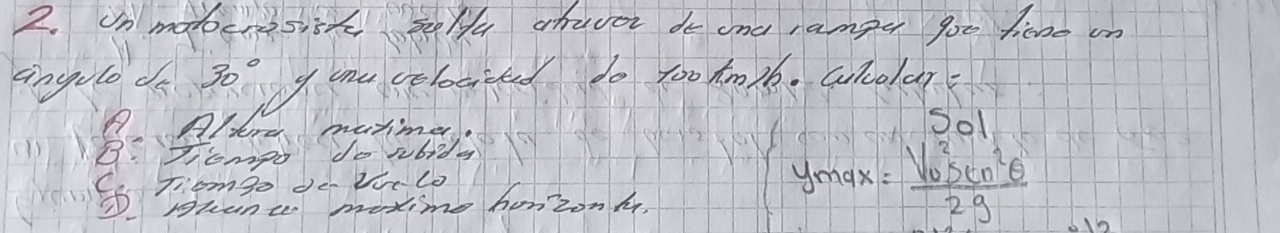 2. Un motocrosista salta atraves de una rampa que tiene un
ángulo de 30° y una velocidad de 100 km/h. Calcular:
A. Altura maxima.
B. Tiempo de subida
C. Tiempo de Vuelo
D. Alcance maximo horizontal.
Sol
ymax = Vo² Sen² θ
2g